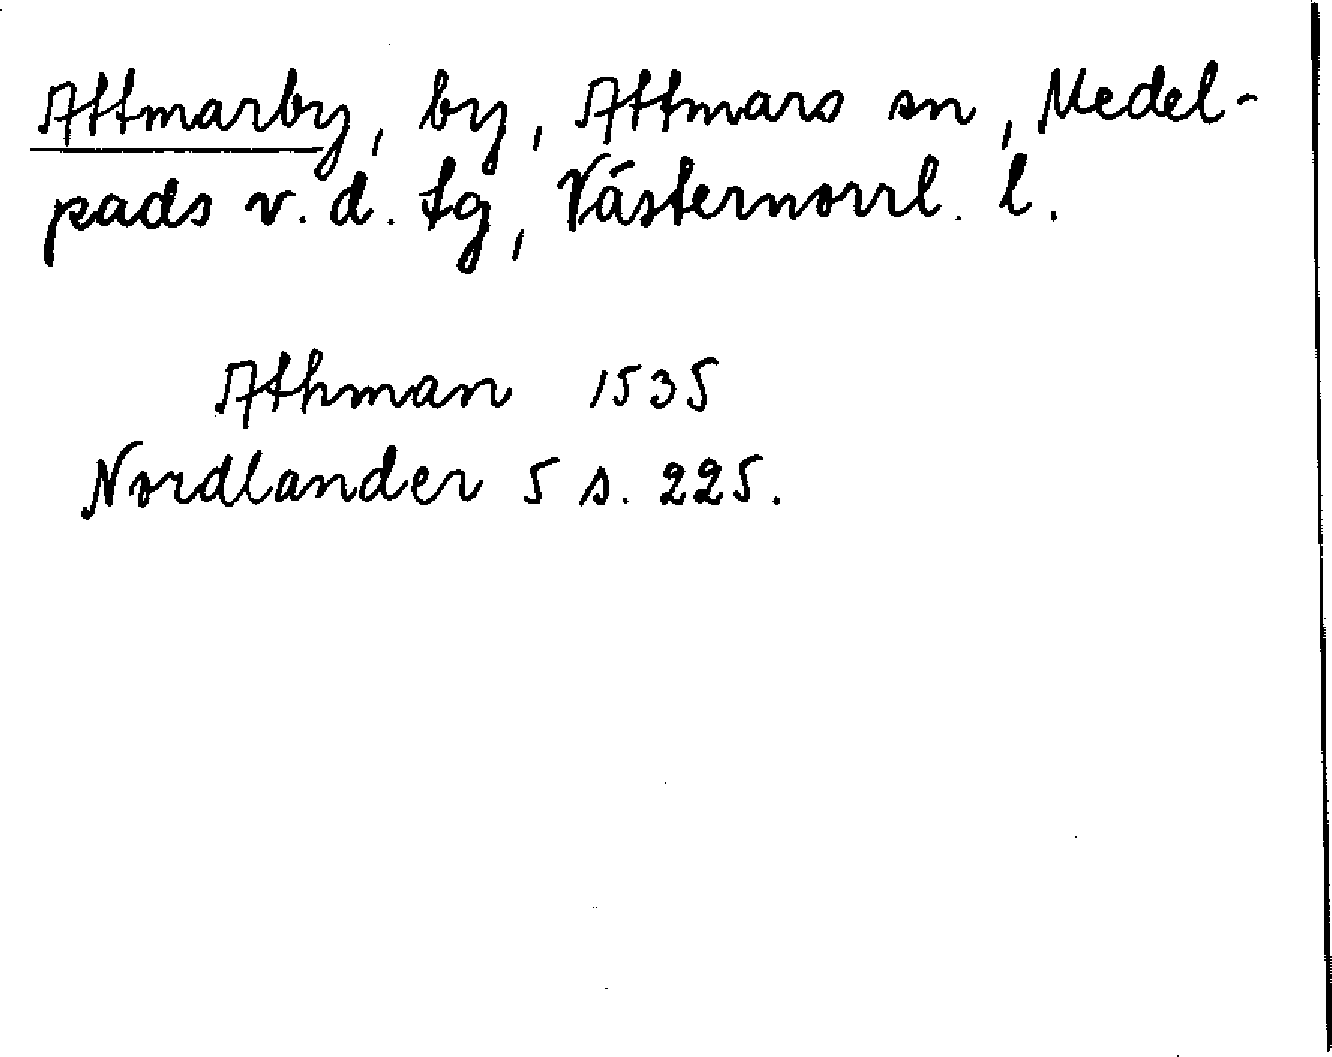 Attmarby, by, Attmars sn, Medel-
pads v. d. tg, Västernorrl. l.
Athman 1535
Nordlander 5 s. 225.